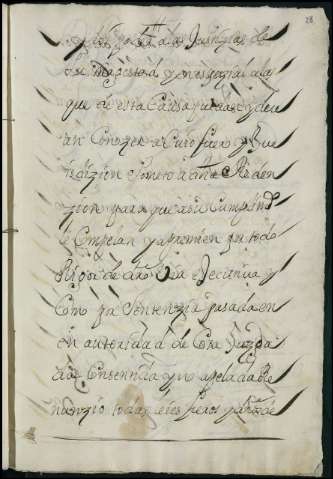 28
a las Justizias de
su magestad y en espezial a las
que de esta Causa puedan y deu
an Conozer a Cuio fuero y Jur
isdizion someto a dha
zion para que a su Cumplim
Compelan y apremien por todo
Rigor de dro Via executiua y
Como por sentenzia pasada en
en autoridad de Cosa Juzga
da Consentida y no apelada Re
nunzio todas leies fueros y